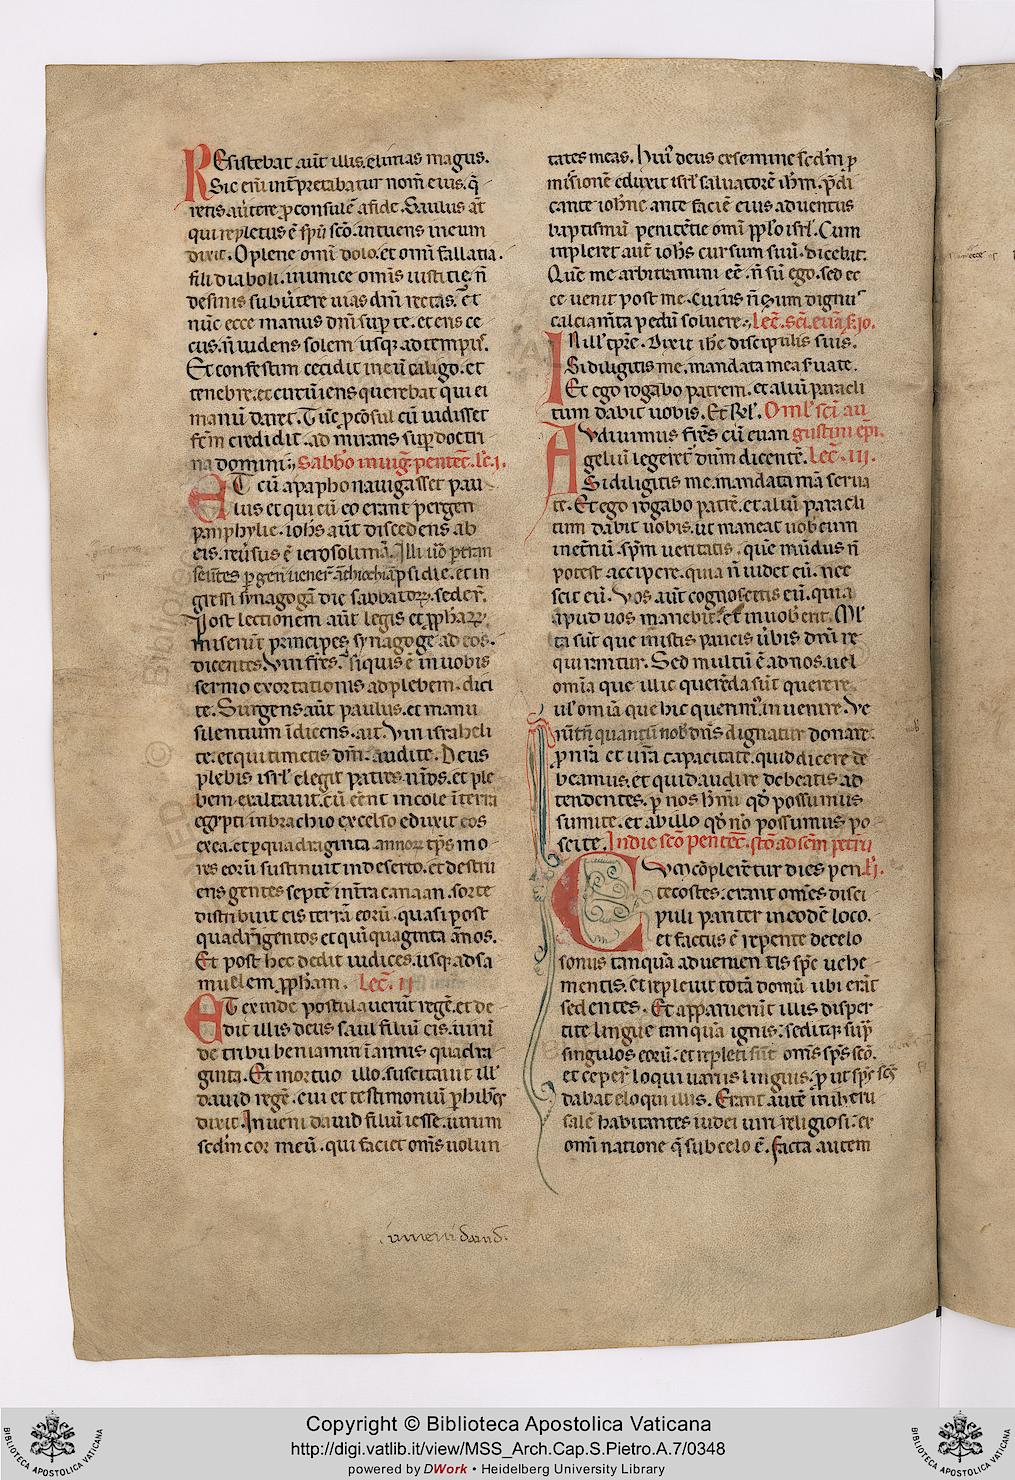 REsistebat aut̄ illis. elimas magus.
Sic eni͂ int̄pretabatur nom̄ eius. q̄
rens au̓tere ꝓconsulē a fide. Saulus at̄
qui repletus ē spū sc̄o. intuens in eum
dixit. O plene omī dolo. et omī fallatia.
fili diaboli. inimice omīs iustitię. n̄
desinis subu̓tere uias dn̄i rectas. Et
nūc ecce manus dn̄i suꝑ te. et eris ce
cus. n̄ uidens solem usq; ad tempus.
Et confestim cecidit in eū caligo. et
tenebre. et circūiens querebat qui ei
manū daret. Tūc ꝓcōsul cū uidisset
fc̄m credidit. ad mirans suꝑ doctri
na domini. Sabb̓o in uig̓. pentec̄. l̓c̄. i.
ET cū a papho nauigasset pau
lus et qui cū eo erant pergen
pamphylie. ioh̄s aūt discedens ab
eis. reu̓sus ē ierosolimā. Illi uō ꝑtran
seūtes ꝑgen̄ uener̄ anthiochiā psidie. et in
gressi synagogā die sabbatoꝝ. seder̄.
Post lectionem aūt legis et ꝓphaꝝ
miserūt principes synagoge ad eos.
dicentes. Viri fr̄es. si quis ē in uobis
sermo exortationis ad plebem. dici
te. Surgens aūt paulus. et manu
silentium īdicens. ait. Viri israheli
te. et qui timetis dm̄. audite. Deus
plebis isrl̓ elegit patres nr̄os. et ple
bem exaltauit. cū eēnt incole ī terra
egypti in brachio excelso eduxit eos
ex ea. et ꝑ quadraginta annoꝝ tp̄s mo
res eorū sustinuit in deserto. et destru
ens gentes septē in t̄ra canaan. sorte
distribuit eis terrā eorū. quasi post
quadrīgentos et quīquaginta annos.
Et post hec dedit iudices. usq; ad sa
muelem ꝓph̄am. Lec̄. ii
ET exinde postulauerūt regē. et de
dit illis deus saul filiū cis. uirū
de tribu beniamin ī annis quadra
ginta. Et mortuo illo. suscitauit ill̓
dauid regē. cui et testimoniū ꝑhibēs
dixit. Inueni dauid filiū iesse. uirum
sedm̄ cor meū. qui faciet omīs uolun
inueni dauid.
tates meas. Hui̓ deus ex semine sedm̄ ꝓ
missionē eduxit isrl̓ saluatorē ih̄m. p̄di
cante ioh̄ne. ante faciē eius aduentus
baptismū penitētie omī ppl̓o isrl̓. Cum
inpleret aut̄ ioh̄s cursum suū. dicebat.
Quē me arbitramini eē. n̄ sū ego. sed ec
ce uenit post me. cuius n̄ sum dignus
calciam̄ta pedū soluere. Lec̄. sc̄i. euā. s̄. io.
IN ill̓ tp̄re. Dixit ih̄c discipulis suis.
Si diligitis me. mandata mea s̓uate.
Et ego rogabo patrem. et aliū paracli
tum dabit uobis. Et Rel̓. Oml̓. sc̄i au
AVdiuimus fr̄es cū euan gustini ep̄i.
geliū legeret̓ dn̄m dicentē. Lec̄. iii.
Si diligitis me. mandata mā serua
te. Et ego rogabo patrē. et aliū paracli
tum dabit uobis. ut maneat uob̄cum
inet̓nū. sp̄m ueritatis. quē mūdus n̄
potest accipere. quia n̄ uidet eū. nec
scit eū. Vos aūt cognoscetis eū. quia
apud uos manebit. et in uob̄ erit. Ml̓
ta sūt que in istis paucis u̓bis dn̄i re
quirantur. Sed multū ē ad nos. uel
omīa que illic querēda sūt querere.
ul̓ omīa que hic querim̓. inuenire. Ve
rūtn̄ quantū nob̄ dn̄s dignatur donare.
ꝓ nr̄a et ur̄a capacitatē. quid dicere de
beamus. et quid audire debeatis ad
tendentes. ꝑ nos kr̄mi qd̓ possumus
sumite. et ab illo qd̓ nō possumus po
scite. In die sc̄o pentec̄. st̄o ad sc̄m petrū
CVm cōplerētur dies pen l̓. i.
tecostes. erant omēs disci
puli pariter in eodē loco.
et factus ē repente de celo
sonus tanquā aduenientis sp̄c uehe
mentis. et repleuit totā domū ubi erāt
sedentes. Et apparuerūt illis disper
tite lingue tanquā ignis. seditq; suꝑ
singulos eorū. et repleti sūt omīs sp̄s sc̄o.
et ceper̄ loqui uariis linguis. ꝓ ut sp̄c sc̄s
dabat eloqui illis. Erant autē in iheru
salē habitantes iudei uiri religiosi. ex
omī natione q̄ sub celo ē. Facta autem
Copyright © Biblioteca Apostolica Vaticana
http://digi.vatlib.it/view/MSS_Arch.Cap.S.Pietro.A.7/0348
powered by DWork • Heidelberg University Library
BIBLIOTECA APOSTOLICA VATICANA
BIBLIOTECA APOSTOLICA VATICANA